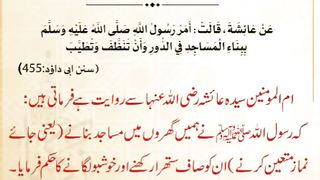 عَنْ عَائِشَةَ، قَالَتْ: أَمَرَ رَسُولُ اللَّهِ صَلَّى اللَّهُ عَلَيْهِ وَسَلَّمَ
بِبِنَاءِ الْمَسَاجِدِ فِي الدُّورِ وَأَنْ تُنَظَّفَ وَتُطَيَّبَ
(سنن ابی داؤد:455)
ام المومنین سیدہ عائشہ رضی اللہ عنہا سے روایت ہے فرماتی ہیں:
کہ رسول اللہ ﷺ نے ہمیں گھروں میں مساجد بنانے (یعنی جائے
نماز متعین کرنے) ان کو صاف ستھرا رکھنے اور خوشبو لگانے کا حکم فرمایا۔